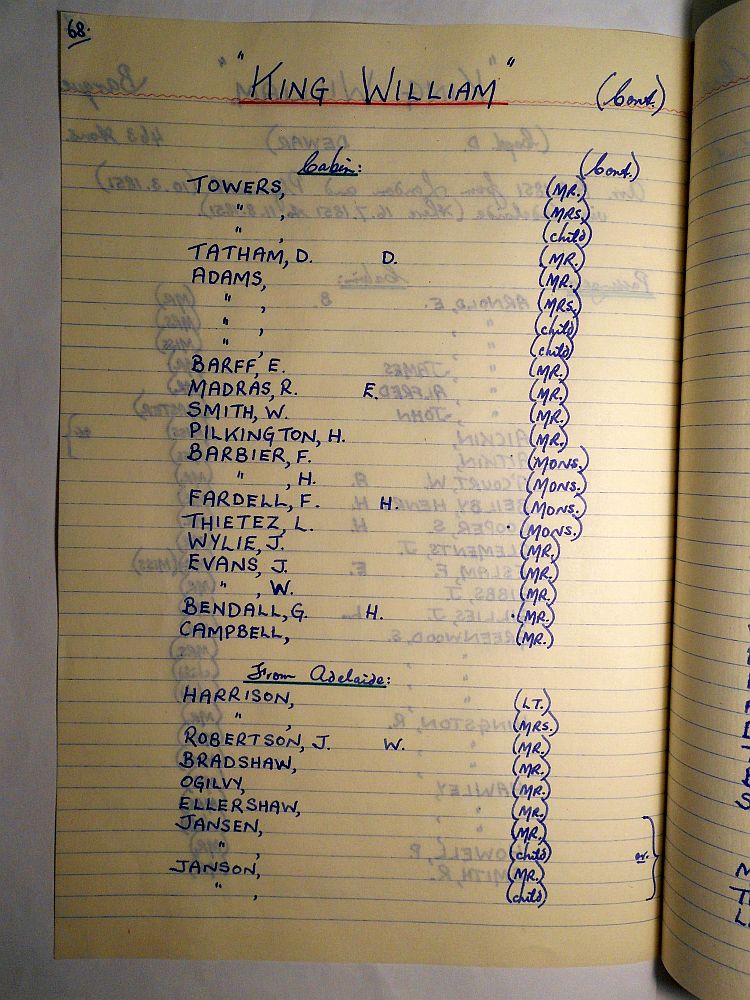 68.
"KING WILLIAM" (Cont.)
Cabin: (Cont.)
TOWERS, (MR.)
" , (MRS.)
" , (child)
TATHAM, D. D. (MR.)
ADAMS, (MR.)
" , (MRS.)
" , (child)
" , (child)
BARFF, E. (MR.)
MADRAS, R. E. (MR.)
SMITH, W. (MR.)
PILKINGTON, H. (MR.)
BARBIER, F. (MONS.)
" , H. (MONS.)
FARDELL, F. H. (MONS.)
THIETEZ, L. (MONS.)
WYLIE, J. (MR.)
EVANS, J. (MR.)
" , W. (MR.)
BENDALL, G. H. (MR.)
CAMPBELL, (MR.)
From Adelaide:
HARRISON, (LT.)
" , (MRS.)
ROBERTSON, J. W. (MR.)
BRADSHAW, (MR.)
OGILVY, (MR.)
ELLERSHAW, (MR.)
JANSEN, (MR.)
" , (child) or.
JANSON, (MR.)
" , (child)